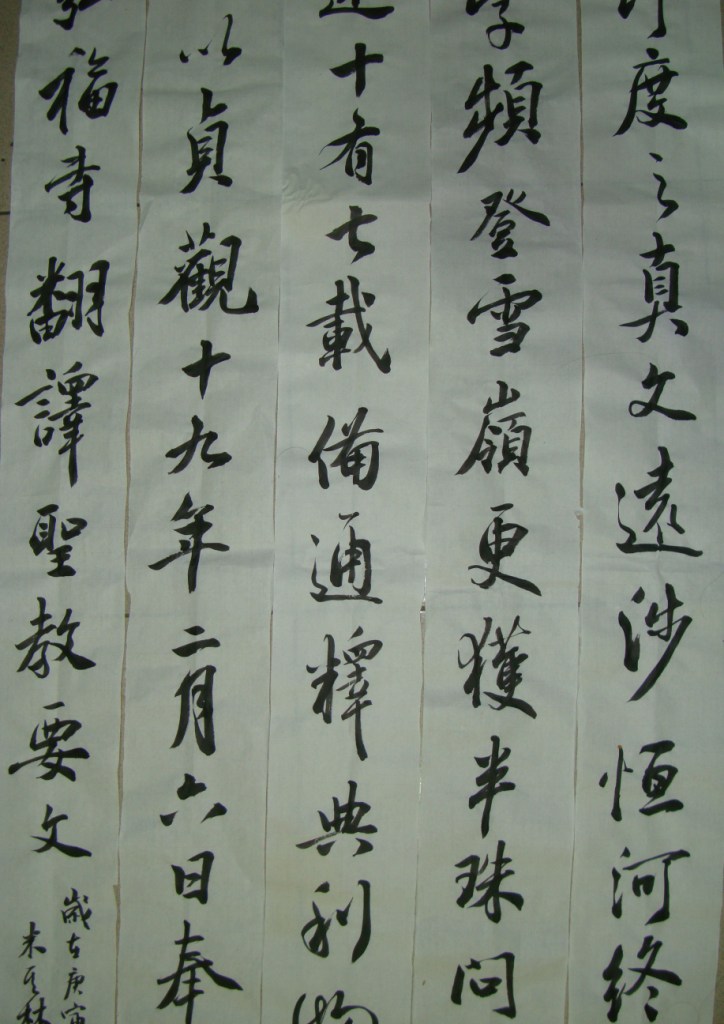 度之真文遠涉恒河終
字頻登雪嶺更獲半珠問
十有七載備通釋典利物
以貞觀十九年二月六日奉
弘福寺翻譯聖教要文
歲在庚寅